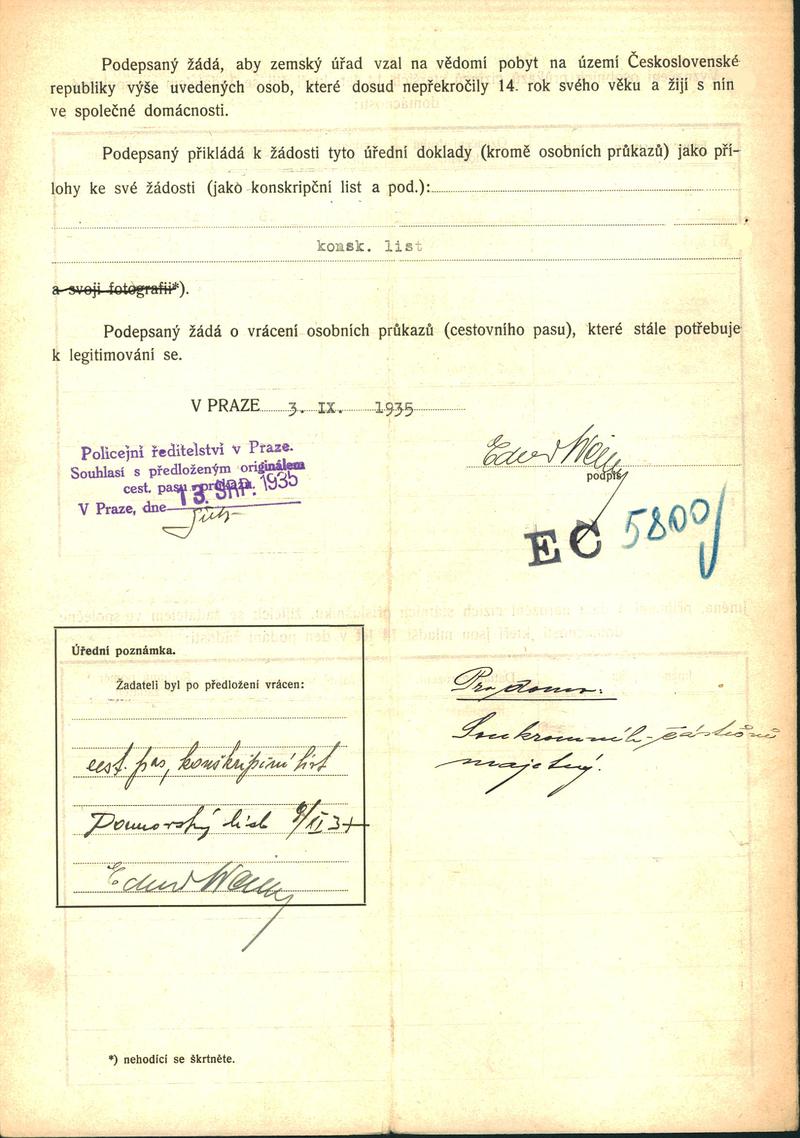 Podepsaný žádá, aby zemský úřad vzal na vědomí pobyt na území Československé
republiky výše uvedených osob, které dosud nepřekročily 14. rok svého věku a žijí s nín
ve společné domácnosti.
Podepsaný přikládá k žádosti tyto úřední doklady (kromě osobních průkazů) jako pří-
lohy ke své žádosti (jako konskripční list a pod.):
konsk. list
a svoji fotografii*).
Podepsaný žádá o vrácení osobních průkazů (cestovního pasu), které stále potřebuje
k legitimování se.
V PRAZE 3. IX. 1935
Policejní ředitelství v Praze.
Souhlasí s předloženým originálem
cest. pasu
V Praze, dne 13. SRP. 1935
podpis
EC 5800
Úřední poznámka.
Žadateli byl po předložení vrácen:
cest. pas, konskripční list
Domovský list
Pro domo:
Soukromník - částečně
majetný.
*) nehodící se škrtněte.